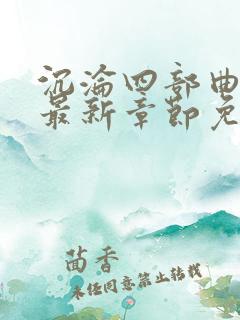 沉沦四部曲
最新章节免
茴香
未经同意禁止转载